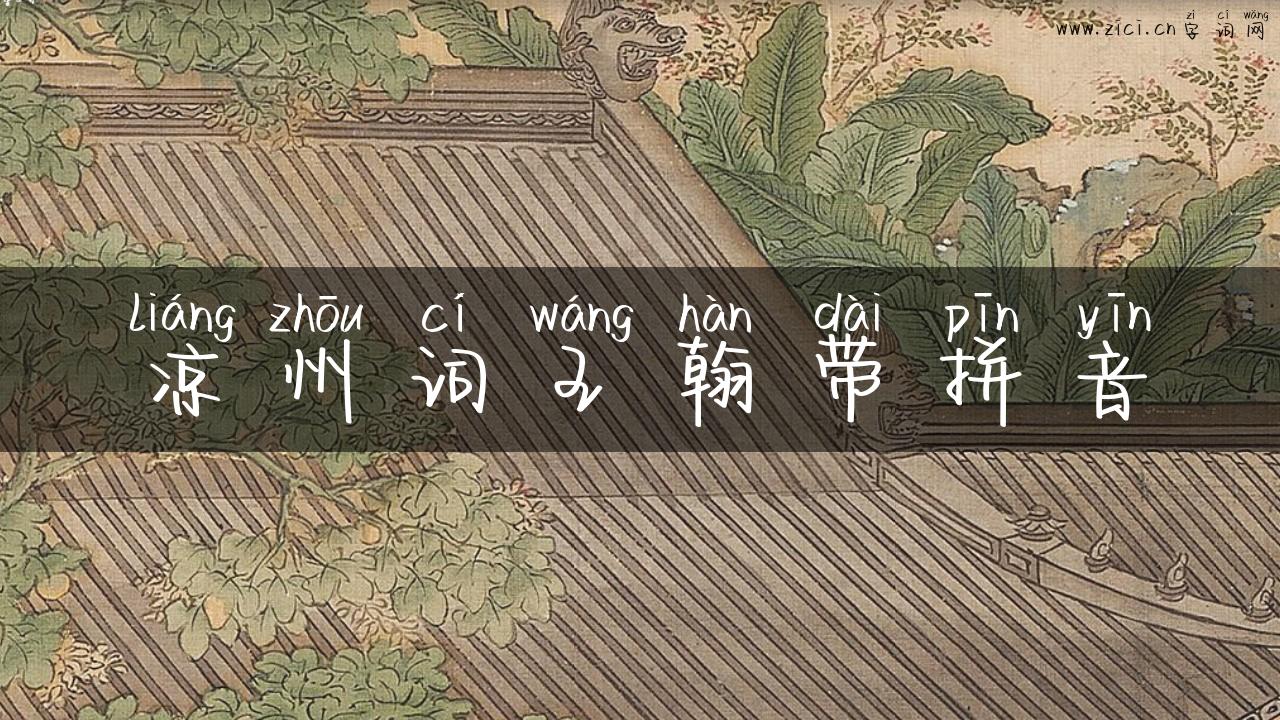 zì cí wǎng
www.zici.cn 字词网
liáng zhōu cí wáng hàn dài pīn yīn
凉州词王翰带拼音